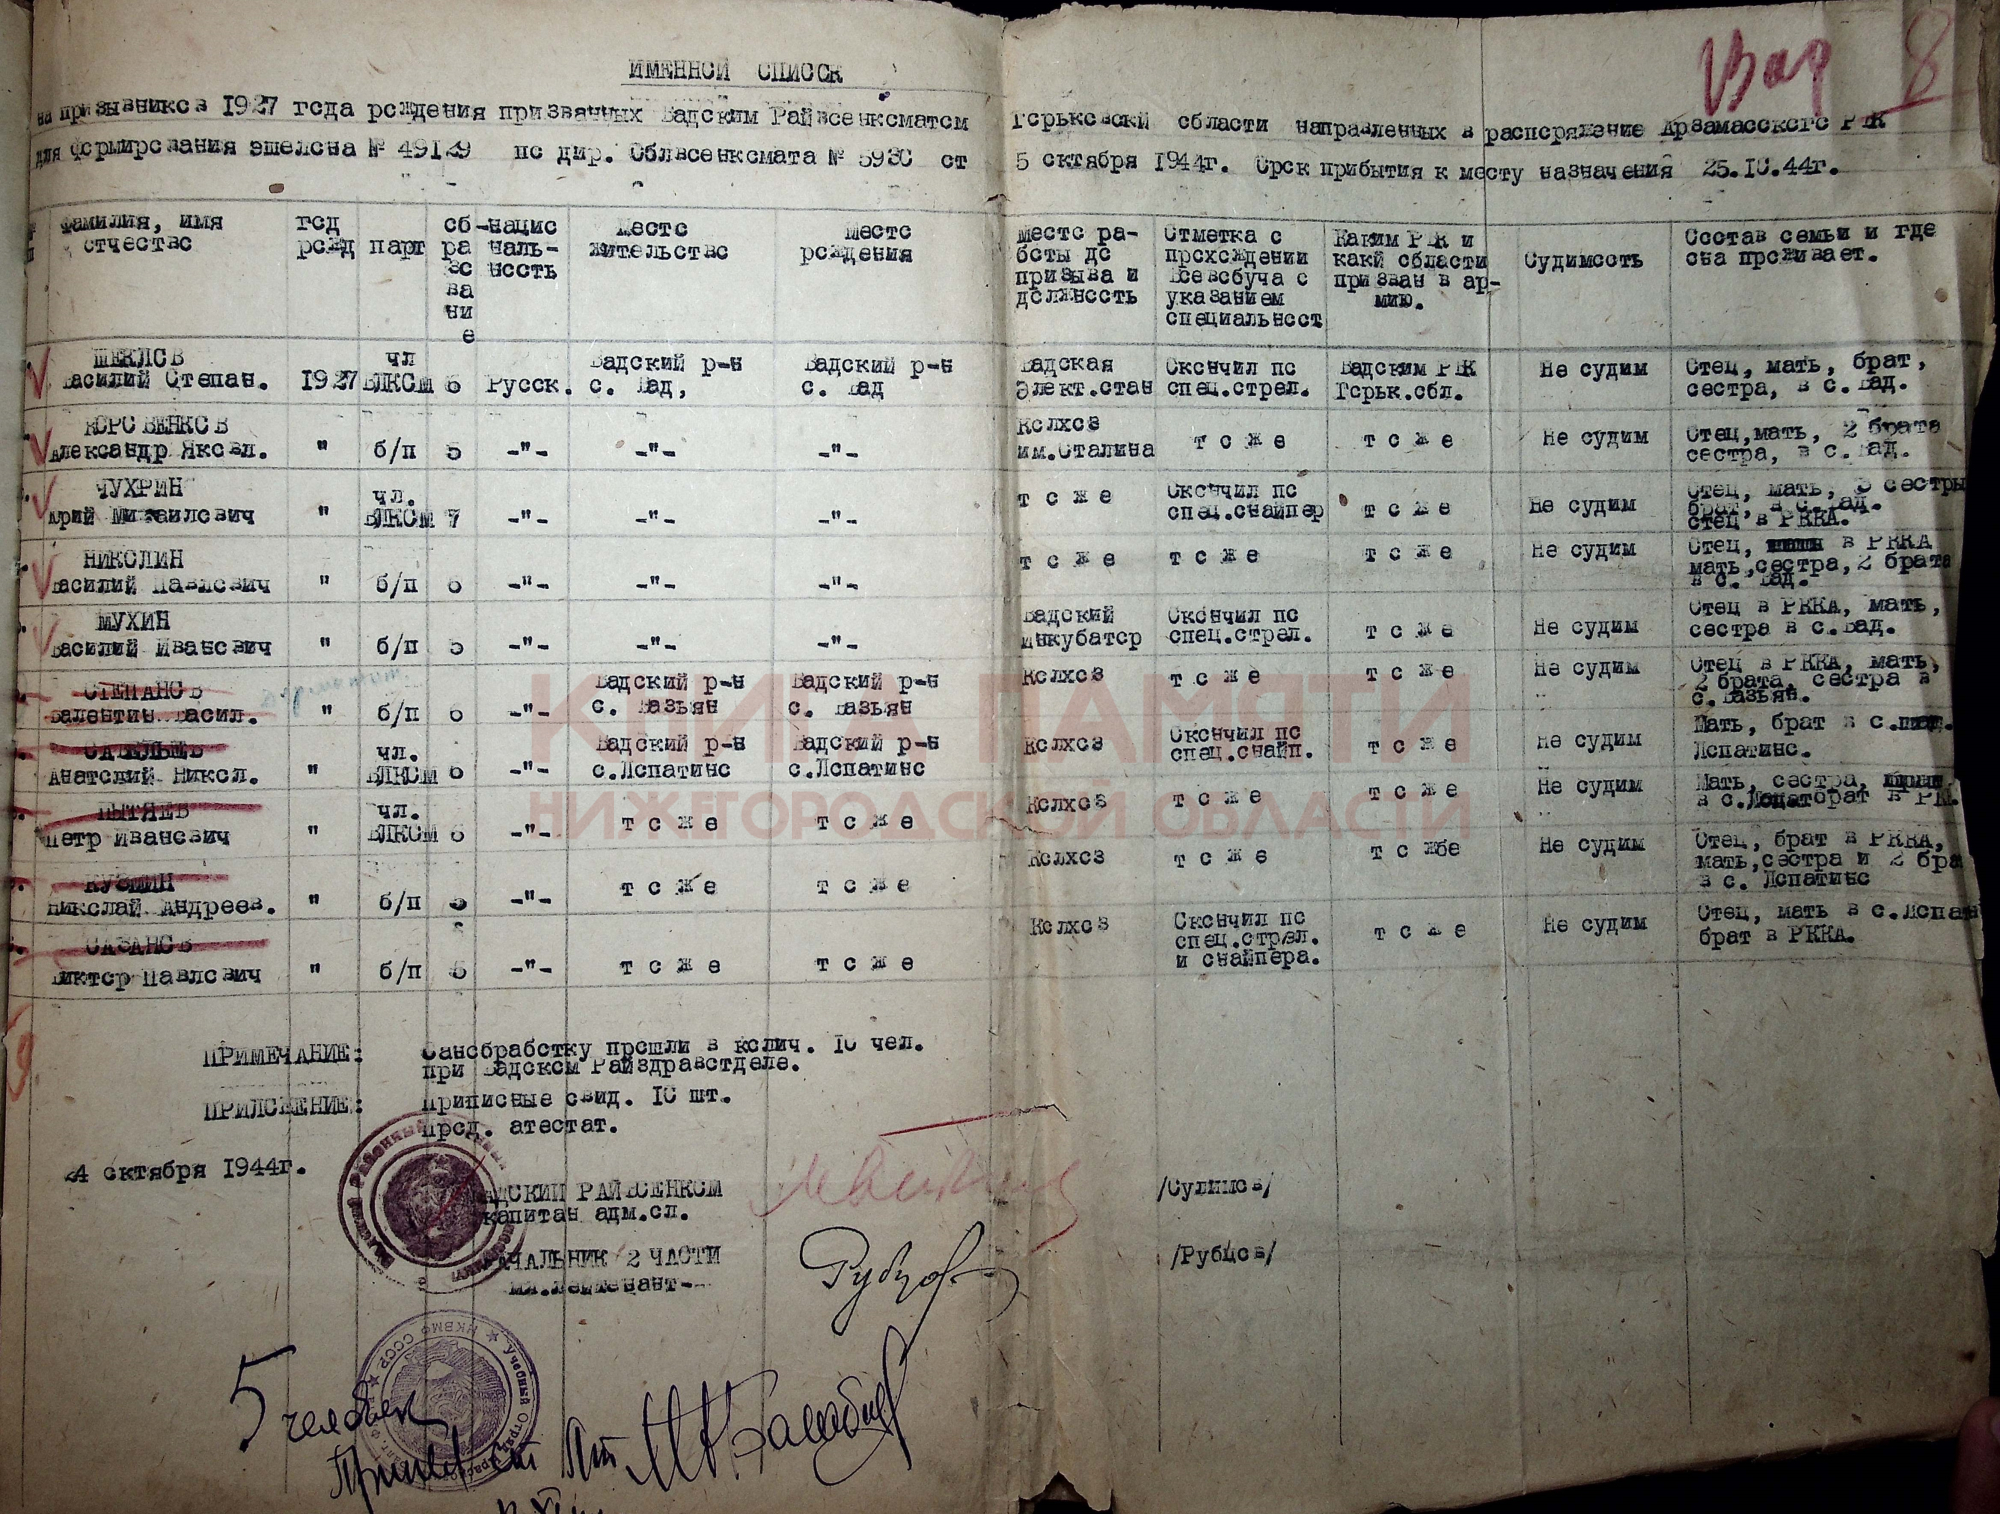 Вад 8
ИМЕННОЙ СПИСОК
на призывников 1927 года рождения призванных Вадским Райвоенкоматом Горьковской области направленных в распоряжение Арзамасского РВК
для формирования эшелона № 49129 по дир. Облвоенкомата № 5930 от 5 октября 1944г. Срок прибытия к месту назначения 25.10.44г.
Фамилия, имя отчество | год рожд | парт | образование | национальность | Место жительство | Место рождения | Место работы до призыва и должность | Отметка о прохождении Всевобуча с указанием специальност | Каким РВК и какй области призван в армию. | Судимость | Состав семьи и где она проживает.
ШЕКЛОВ Василий Степан. | 1927 | чл ВЛКСМ | 6 | Русск. | Вадский р-н с. Вад, | Вадский р-н с. Вад | Вадская Элект.стан | Окончил по спец.стрел. | Вадским РВК Горьк.обл. | Не судим | Отец, мать, брат, сестра, в с. Вад.
КОРОВЕНКОВ Александр Яковл. | " | б/п | 5 | -"- | -"- | -"- | Колхоз им.Сталина | т о ж е | т о ж е | Не судим | Отец,мать, 2 брата сестра, в с. Вад.
ЧУХРИН Юрий Михаилович | " | чл. ВЛКСМ | 7 | -"- | -"- | -"- | т о ж е | Окончил по спец.снайпер | т о ж е | Не судим | Отец, мать, 3 сестры брат, в с. Вад. отец в РККА.
НИКОЛИН Василий Павлович | " | б/п | 6 | -"- | -"- | -"- | т о ж е | т о ж е | т о ж е | Не судим | Отец, в РККА мать,сестра,2 брата в с. Вад.
МУХИН Василий Иванович | " | б/п | 5 | -"- | -"- | -"- | Вадский Инкубатор | Окончил по спец.стрел. | т о ж е | Не судим | Отец в РККА, мать, сестра в с.Вад.
СТЕПАНОВ Валентин Васил. | " | б/п | 6 | -"- | Вадский р-н с. Вазьян | Вадский р-н с. Вазьян | Колхоз | т о ж е | т о ж е | Не судим | Отец в РККА, мать, 2 брата, сестра в с.Вазьян.
САВЕЛЬЕВ Анатолий Никол. | " | чл. ВЛКСМ | 6 | -"- | Вадский р-н с.Лопатино | Вадский р-н с.Лопатино | Колхоз | Окончил по спец.снайп. | т о ж е | Не судим | Мать, брат в с. Лопатино.
ПЫТЯЕВ Петр Иванович | " | чл. ВЛКСМ | 6 | -"- | т о ж е | т о ж е | Колхоз | т о ж е | т о ж е | Не судим | Мать, сестра, в с. брат в РК.
КУЗМИН Николай Андреев. | " | б/п | 5 | -"- | т о ж е | т о ж е | Колхоз | т о ж е | т о жбе | Не судим | Отец, брат в РККА, мать,сестра и 2 бра в с. Лопатино
САЗАНОВ Виктор Павлович | " | б/п | 5 | -"- | т о ж е | т о ж е | Колхоз | Окончил по спец.стрел. и снайпера. | т о ж е | Не судим | Отец, мать в с.Лопат брат в РККА.
ПРИМЕЧАНИЕ: Санобработку прошли в колич. 10 чел.
при Вадском Райздравотделе.
ПРИЛОЖЕНИЕ: Приписные свид. 10 шт.
прод. атестат.
24 октября 1944г.
ВАДСКИЙ РАЙВОЕНКОМ
капитан адм.сл. /Сулимов/
НАЧАЛЬНИК 2 ЧАСТИ
мл.лейтенант- Рубцов /Рубцов/
НКВМФ СССР
Учебный Отряд
5 человек
Принял
КНИГА ПАМЯТИ
НИЖЕГОРОДСКОЙ ОБЛАСТИ